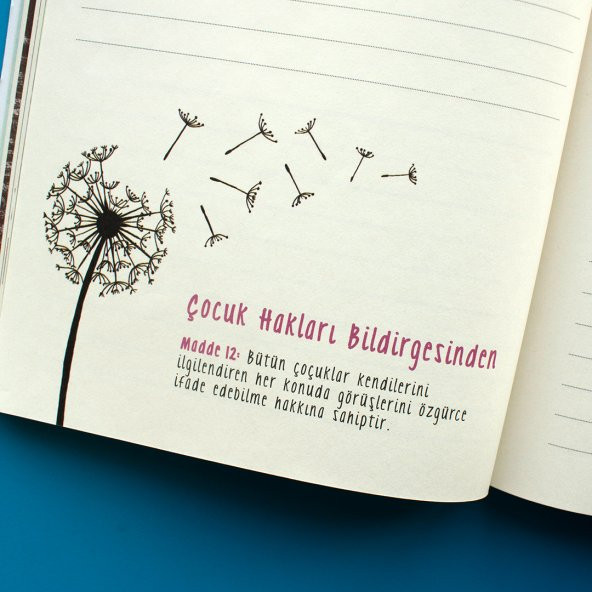 Çocuk Hakları Bildirgesinden
Madde 12: Bütün çoçuklar kendilerini
ilgilendiren her konuda görüşlerini özgürce
ifade edebilme hakkına sahiptir.